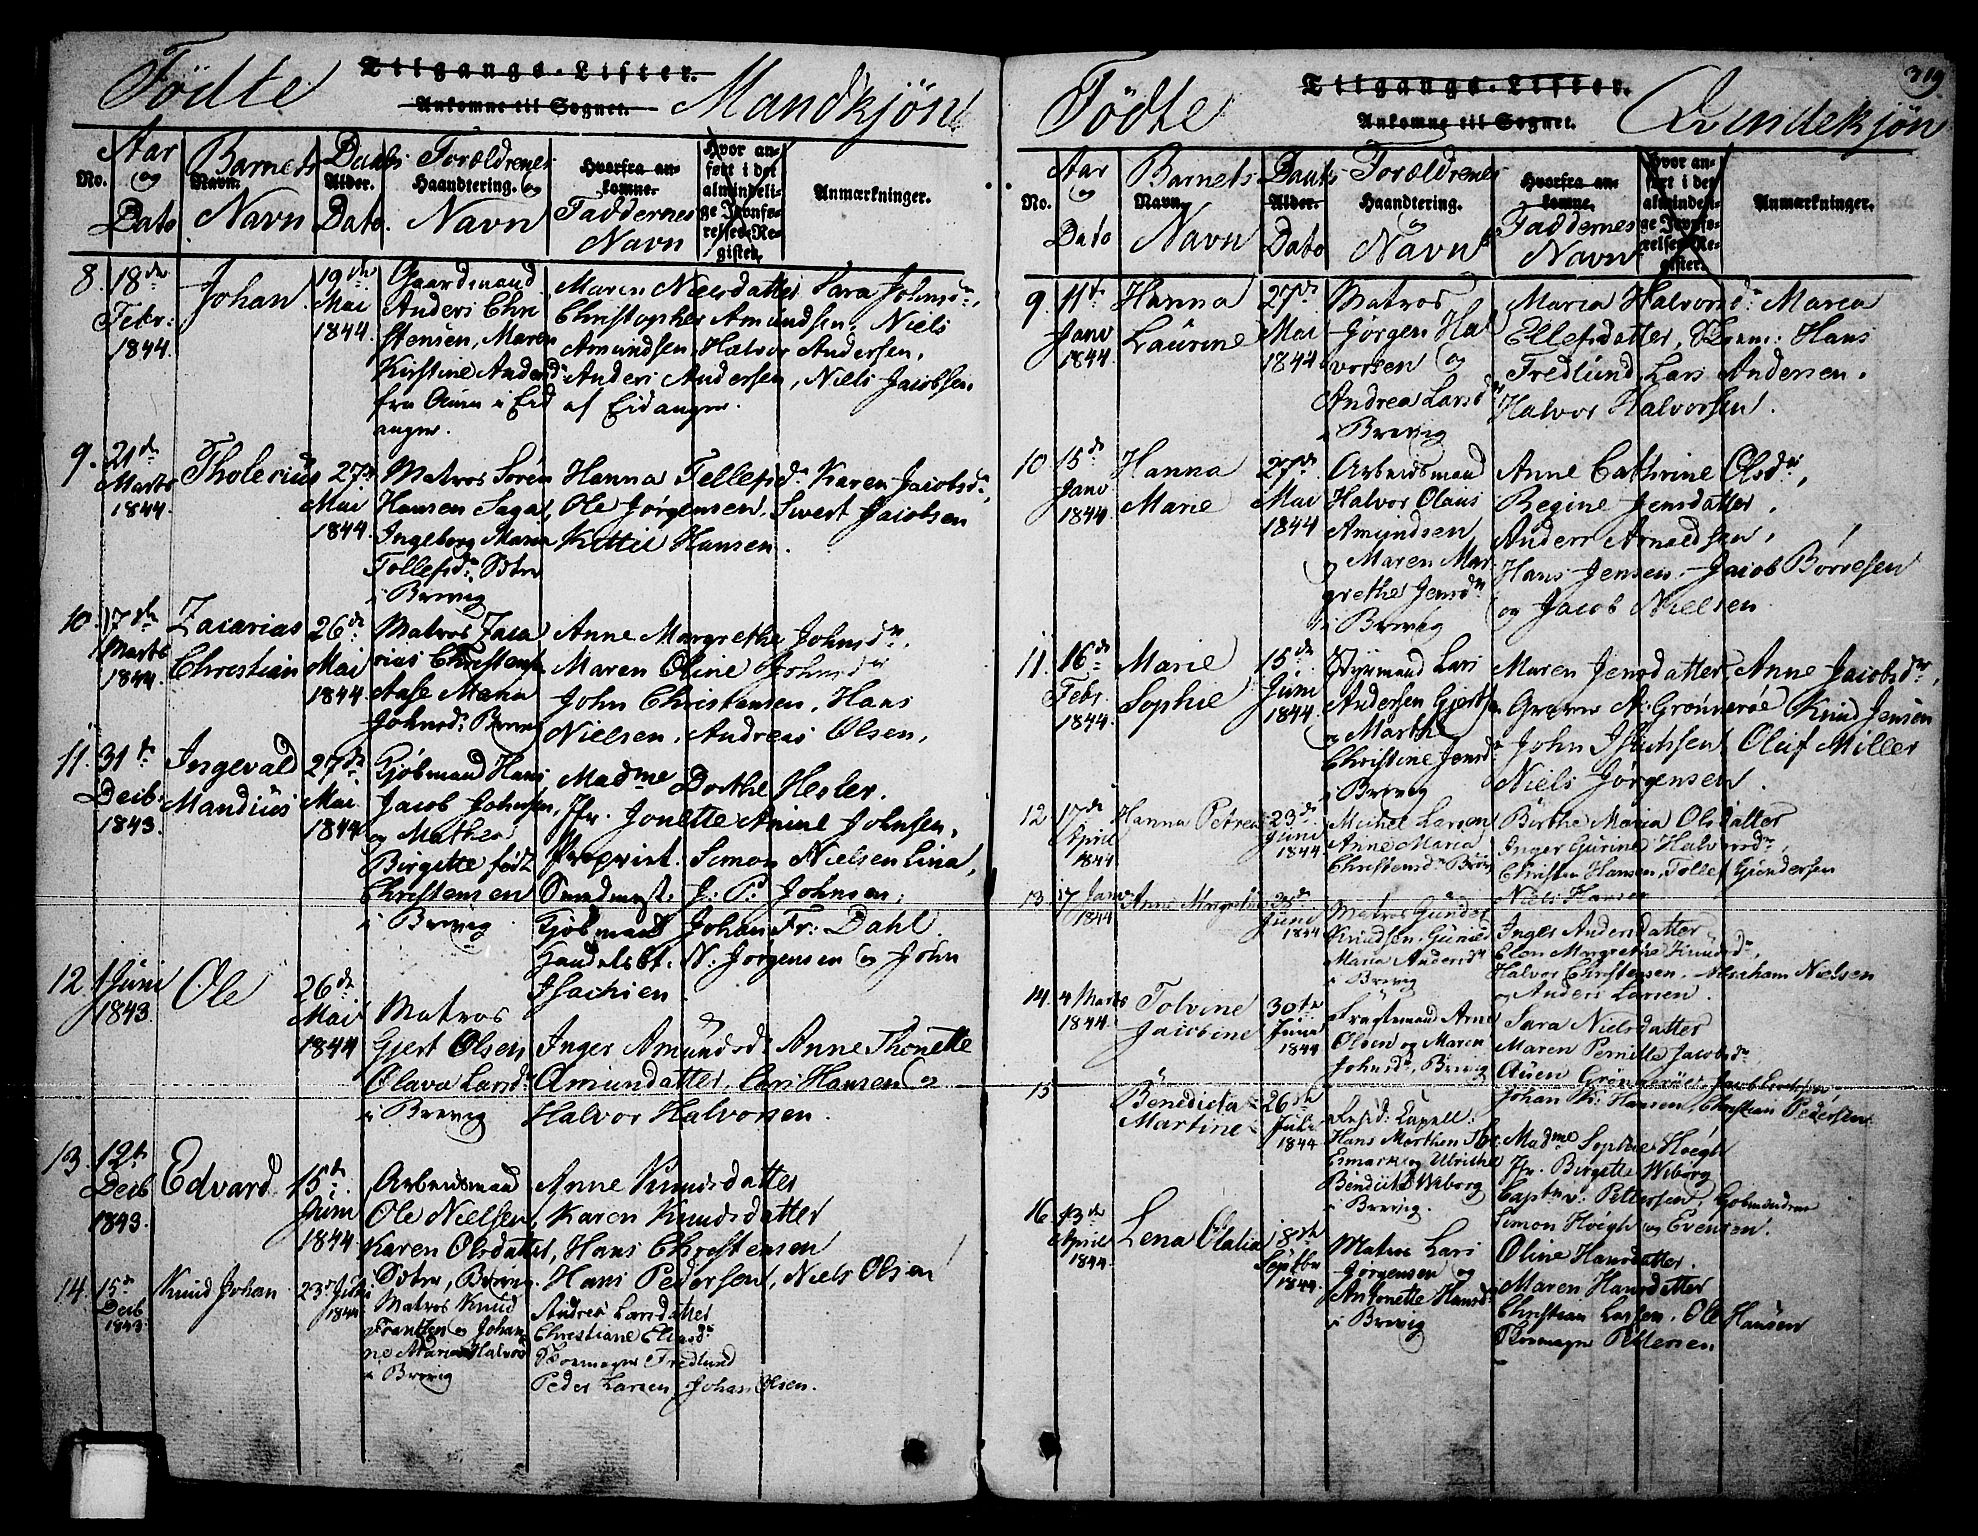 Tilgangs-Lister.
Födte
Mandkjön
Ankomne til Sognet.
No.
Aar og Dato
Barnets Navn. Navn
Daabs Alder. Dato.
Forældrenes Haandtering. og Navn
Hvorfra ankomne. Faddernes Navn
Hvor anført i det almindelige Jevnførelses-Register.
Anmærkninger.
8. 18de Febr: 1844.
Johan.
19de Mai 1844
Gaardmand
Anders Chri
stensen, Maren
Kirstine Andersd
fra Ouen i Eid
anger.
Maren Nielsdatter Sara Johnsd.,
Christopher Amundsen, Niels
Amundsen, Halvor Andersen,
Anders Andersen, Niels Jacobsen
af Eidanger.
9. 21de Marts 1844.
Tholerius
27de Mai 1844.
Matros Søren
Hansen Saga,
Ingeborg Maria
Tollefsd.
i Brevig
Hanna Tellefsd. Karen Jacobsd.,
Ole Jørgensen. Sivert Jacobsen
Kittil Hansen.
10. 17de Marts 1844.
Zacarias
Christian
26de Mai 1844
Matros Zaca
rias Christens
Aase Maria
Johnsd. Brevig
Anne Margrethe Johnsdr.
Maren Oline Johnsdr
John Christensen, Hans
Nielsen, Andreas Olsen,
11. 31te Decb: 1843.
Ingevald
Mandius
27de Mai 1844
Kjøbmand Hans
Jacob Johnsen,
og Mathea
Birgitte født
Christensen
i Brevig
Madme Dorthe Hesler.
Jfr. Jonette Anine Johnsen,
Proprist. Simon Nielsen Lina,
J: P: Johnsen,
Kjøbmand Johan Fr: Dahl.
Handelsbt. N: Jørgensen og John
Isachsen
12. 1 Juni 1843.
Ole
26de Mai 1844
Matros
Gjert Olsen
Olava Larsd.
i Brevig
Inger Amundsd. Anne Thonette
Amundatter, Lars Hansen og
Halvor Halvorsen.
13. 12te Decb 1843.
Edvard
15de Juni 1844
Arbeidsmand
Ole Nielsen,
Karen Olsdatter,
Brevig.
Anne Knudsdatter
Karen Knudsdatter
Hans Christensen
Hans Pedersen, Niels Olsen
14. 15de Decb 1843.
Knud Johan
23de Juni 1844
Matros Knud
Frantzen og Johan
ne Maria Halvors
i Brevig
Andrea Larsdatter
Christiane
Skomager Fredlund
Peder Larsen, Johan Olsen.
319.
Tilgangs-Lister.
Födte
Qvindekjön
Ankomne til Sognet.
No.
Aar og Dato
Barnets Navn. Navn
Daabs Alder. Dato
Forældrenes Haandtering. og Navn
Hvorfra ankomne. Faddernes Navn
Hvor anført i det almindelige Jevnførelses-Register.
Anmærkninger.
9. 11te Janv 1844
Hanna
Laurine
27de Mai 1844
Matros
Jørgen Hal
vorsen og
Andrea Larsd
i Brevig
Maria Halvorsd. Maria
Ellefsdatter, Skoem: Hans
Fredlund Lars Andersen.
Halvor Halvorsen.
10 15de Janv 1844
Hanna
Marie
27de Mai 1844
Arbeidsmand
Halvor Olaus
Amundsen
og Maren Mar
grethe Jensdr
i Brevig
Anne Cathrine Olsdr,
Regine Jensdatter,
Anders Arnedsen,
Hans Jensen. Jacob Börresen
og Jacob Nielsen.
11. 16de Febr 1844
Marie
Sophie
15de Juni 1844.
Styrmand Lars
Andersen Gjertsen
og Marthe
Christine Jensd
i Brevig
Maren Jensdatter, Anne Jacobsdr,
A: Grönneröe Knud Jensen
John Isachsen Oluf Miller
Niels Jørgensen.
12 17de April 1844
Hanna Petrea
23de Juni 1844
Michel Larsen
Anne Maria
Christensdr Brevig
Birthe Maria Olsdatter
Inger Gurine Halvorsdr,
Christen Hansen, Tollef Gundersen
Niels Hansen
13. 17 Janv 1844
Anne Margrethe
Juni 1844
Matros Gunder
Knudsen, Gunild
Maria Andersdr
i Brevig
Inger Andersdatter
Elen Margrethe
Halvor Christensen, Abraham Nielsen
og Anders Larsen.
14. 4 Marts 1844.
Tolvine
Jacobine
30te Juni 1844
Fragtmand Arne
Olsen og Maren
Johnsdr, Brevig
Sara Nielsdatter
Maren Pernille Jacobsdr
Auen Grönneröe, Jacob
Johan Hansen, Christian Pedersen
15
Benedicta
Martine
26de Juli 1844
Resid: Capell:
Hans Morthen Thr
Esmark og Ulrikke
Bendicte Wiborg
i Brevig.
Madme Sophie Höegh
Jfr. Birgitte Wiborg
Captn v: Pettersen, Kjobmændene
Simon Höegh og Evensen.
16. 13de April 1844
Lena Olalia
8de Septbr 1844
Matros Lars
Jørgensen og
Antonette Hansd
i Brevig
Oline Hansdatter.
Maren Hansdatter
Christian Larsen. Ole Hansen
Skomager Pettersen